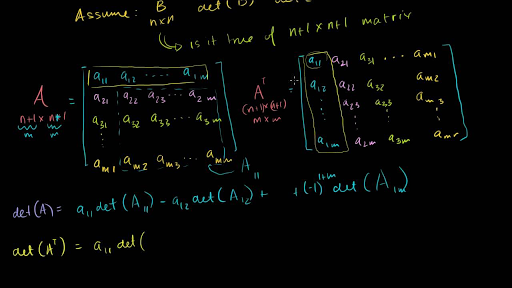 Assume: B det(B)
n×n
↳ is it true of n+1×n+1 matrix
A = [a₁₁ a₁₂ ···· a₁ₘ
a₂₁ a₂₂ a₂₃ ··· a₂ₘ
a₃₁ a₃₂ a₃₃ ··· a₃ₘ
⋮
aₘ₁ aₘ₂ aₘ₃ ··· aₘₘ]
n+1 × n+1
m m
A₁₁
Aᵀ = [a₁₁ a₂₁ a₃₁ ··· aₘ₁
a₁₂ a₂₂ a₃₂ aₘ₂
⋮ a₂₃ a₃₃ aₘ₃
⋮ ⋮ ⋮ ⋮
a₁ₘ a₂ₘ a₃ₘ aₘₘ]
(n+1)×(n+1)
m×m
det(A) = a₁₁ det(A₁₁) - a₁₂ det(A₁₂) + +(-1)¹⁺ᵐ det(A₁ₘ)
det(Aᵀ) = a₁₁ det(